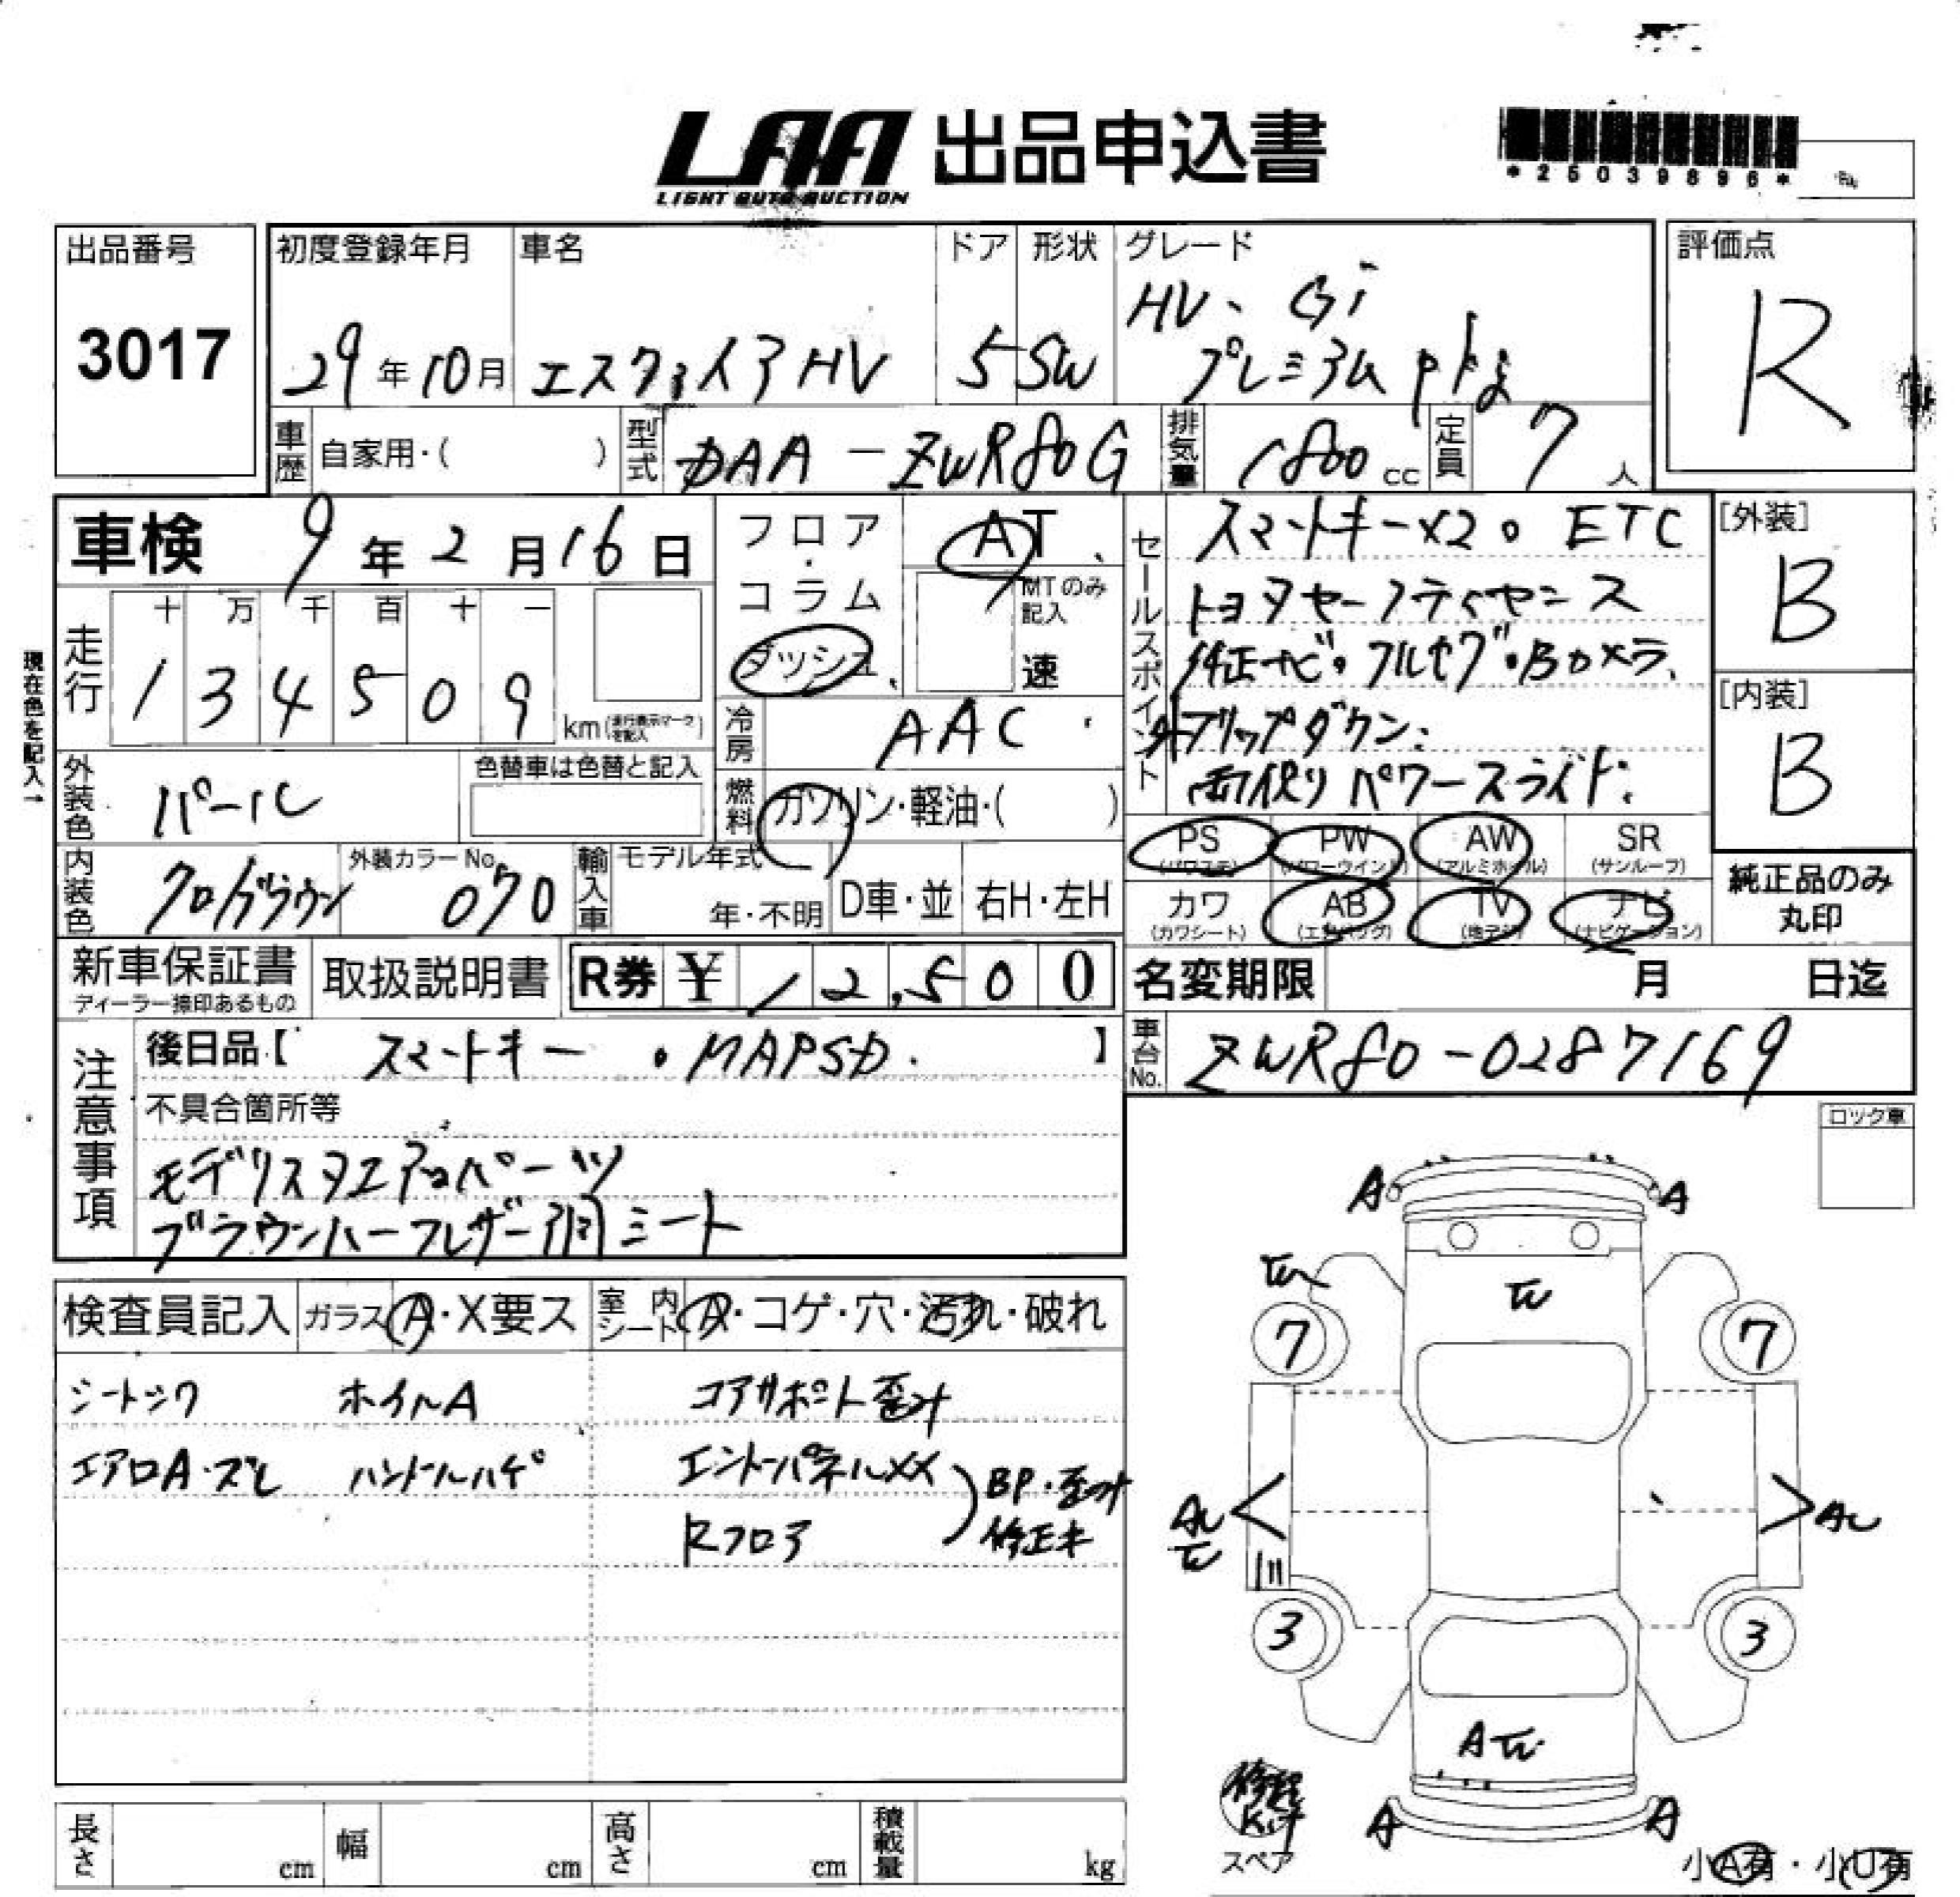 LAA 出品申込書
LIGHT AUTO AUCTION
*25039896*
出品番号
3017
初度登録年月
29年10月
車名
エスクァイアHV
ドア
5
形状
SW
グレード
HV、Gi
プレミアムpkg
評価点
R
車歴
自家用・( )
型式
DAA-ZWR80G
排気量
1800cc
定員
7人
車検
9年2月16日
フロア・コラム
ダッシュ
AT
MTのみ記入
速
現在色を記入→
走行
十 万 千 百 十 一
1 3 4 5 0 9
km(走行表示マークを記入)
冷房
AAC
外装色
パール
色替車は色替と記入
燃料
ガソリン・軽油・( )
内装色
クロ/ブラウン
外装カラーNo.
070
輸入車
モデル年式
年・不明
D車・並
右H・左H
セールスポイント
スマートキー×2。ETC
トヨタセーフティセンス
純正ナビ。フルセグ。Bカメラ
フリップダウン
両側パワースライド
[外装]
B
[内装]
B
PS
(パワステ)
PW
(パワーウインド)
AW
(アルミホイル)
SR
(サンルーフ)
カワ
(カワシート)
AB
(エアバッグ)
TV
(地デジ)
ナビ
(ナビゲーション)
純正品のみ
丸印
新車保証書
ディーラー捺印あるもの
取扱説明書
R券 ¥12,500
名変期限
月 日迄
車台No.
ZWR80-0287169
注意事項
後日品【 スマートキー・MAPSD. 】
不具合箇所等
モデリスタエアロパーツ
ブラウンハーフレザー調シート
ロック車
検査員記入
ガラス A・X要ス
室内シート A・コゲ・穴・汚れ・破れ
シートシワ ホイルA コアサポート歪み
エアロA・ズレ ハンドルハゲ エンドパネルXX
Rフロア
BP・歪み
修正未
A A
7 7
AU
AU
3 3
A
A A
修理
Kit
スペア
小A有・小U有
長さ cm
幅 cm
高さ cm
積載量 kg